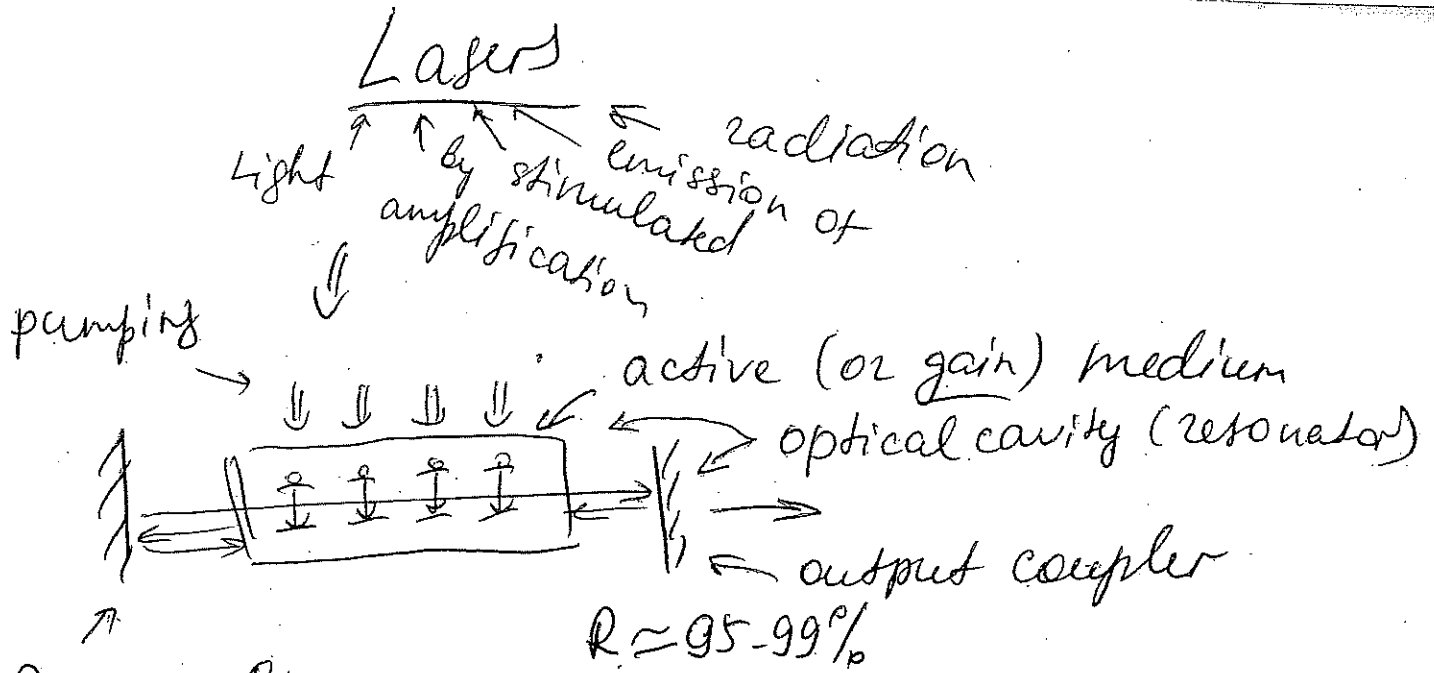 Lasers
Light
amplification
by stimulated
emission of
radiation
pumping
active (or gain) medium
optical cavity (resonator)
output coupler
R ≃ 95-99%